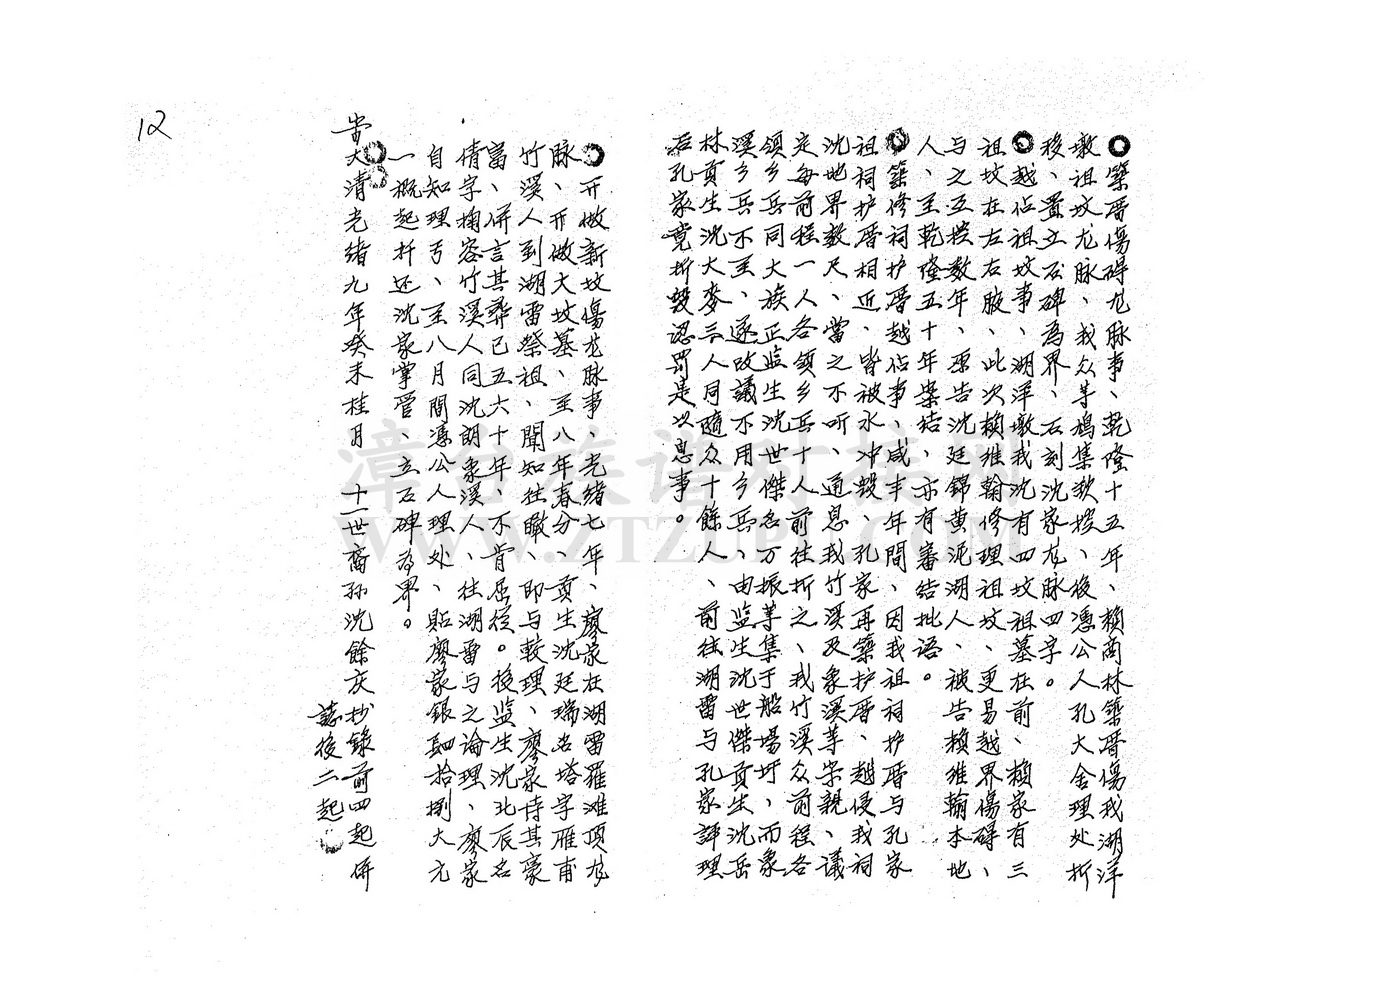 12
築厝傷碍龙脉事、乾隆十五年、賴商林築厝傷我湖洋
墩祖坟龙脉、我众等鳩集欵墢、後憑公人孔大舍理处折
移、置立石碑為界、石刻沈家龙脉四字。
越佔祖坟事、湖洋墩我沈有四坟祖墓在前、賴家有三
祖坟在左右腋、此次賴維翰修理祖坟、更易越界傷碍、
与之互控数年、原告沈廷錦黄泥湖人、被告賴維翰本地
人、至乾隆五十年案结、亦有審结批语。
築修祠护厝越佔事、咸丰年間、因我祖祠护厝与孔家
祖祠护厝相近、皆被水冲毀、孔家再築护厝、越侵我祠
沈地界数尺、當之不听、通息我竹溪及象溪等宗親、議
定每前程一人各领乡兵十人前往折之、我竹溪众前程各
领乡兵同大族正监生沈世傑名万振等集于船場圩，而象
溪乡兵不至、逐改議不用乡兵、由监生沈世傑貢生沈岳
林貢生沈大麥三人同隨众十餘人、前往湖雷与孔家評理
后孔家竟折毀認罚是以息事。
开做新坟傷龙脉事、光绪七年、廖家在湖雷羅滩顶龙
脉、开做大坟墓、至八年春分、貢生沈廷瑞名塔字雁甫
竹溪人到湖雷祭祖、聞知往瞰、即与較理、廖家恃其豪
富、併言其葬已五六十年、不肯屈從。後监生沈北辰名
倩字掬容竹溪人同沈朗象溪人、往湖雷与之论理、廖家
自知理亏、至八月間憑公人理处、貼廖家银肆拾捌大元
一概起扦还沈家掌管 立石碑為界。
峕大清光绪九年癸未桂月 十一世裔孙沈餘庆抄錄前四起併
誌後二起
漳台族谱对接网
WWW.ZTZUPU.COM